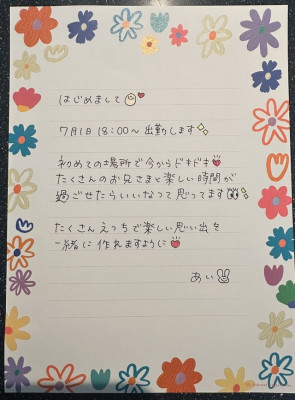 はじめまして
7月1日 18:00〜 出勤します
初めての場所で今からドキドキ
たくさんのお兄さまと楽しい時間が
過ごせたらいいなって思ってます
たくさんえっちで楽しい思い出を
一緒に作れますように
あい